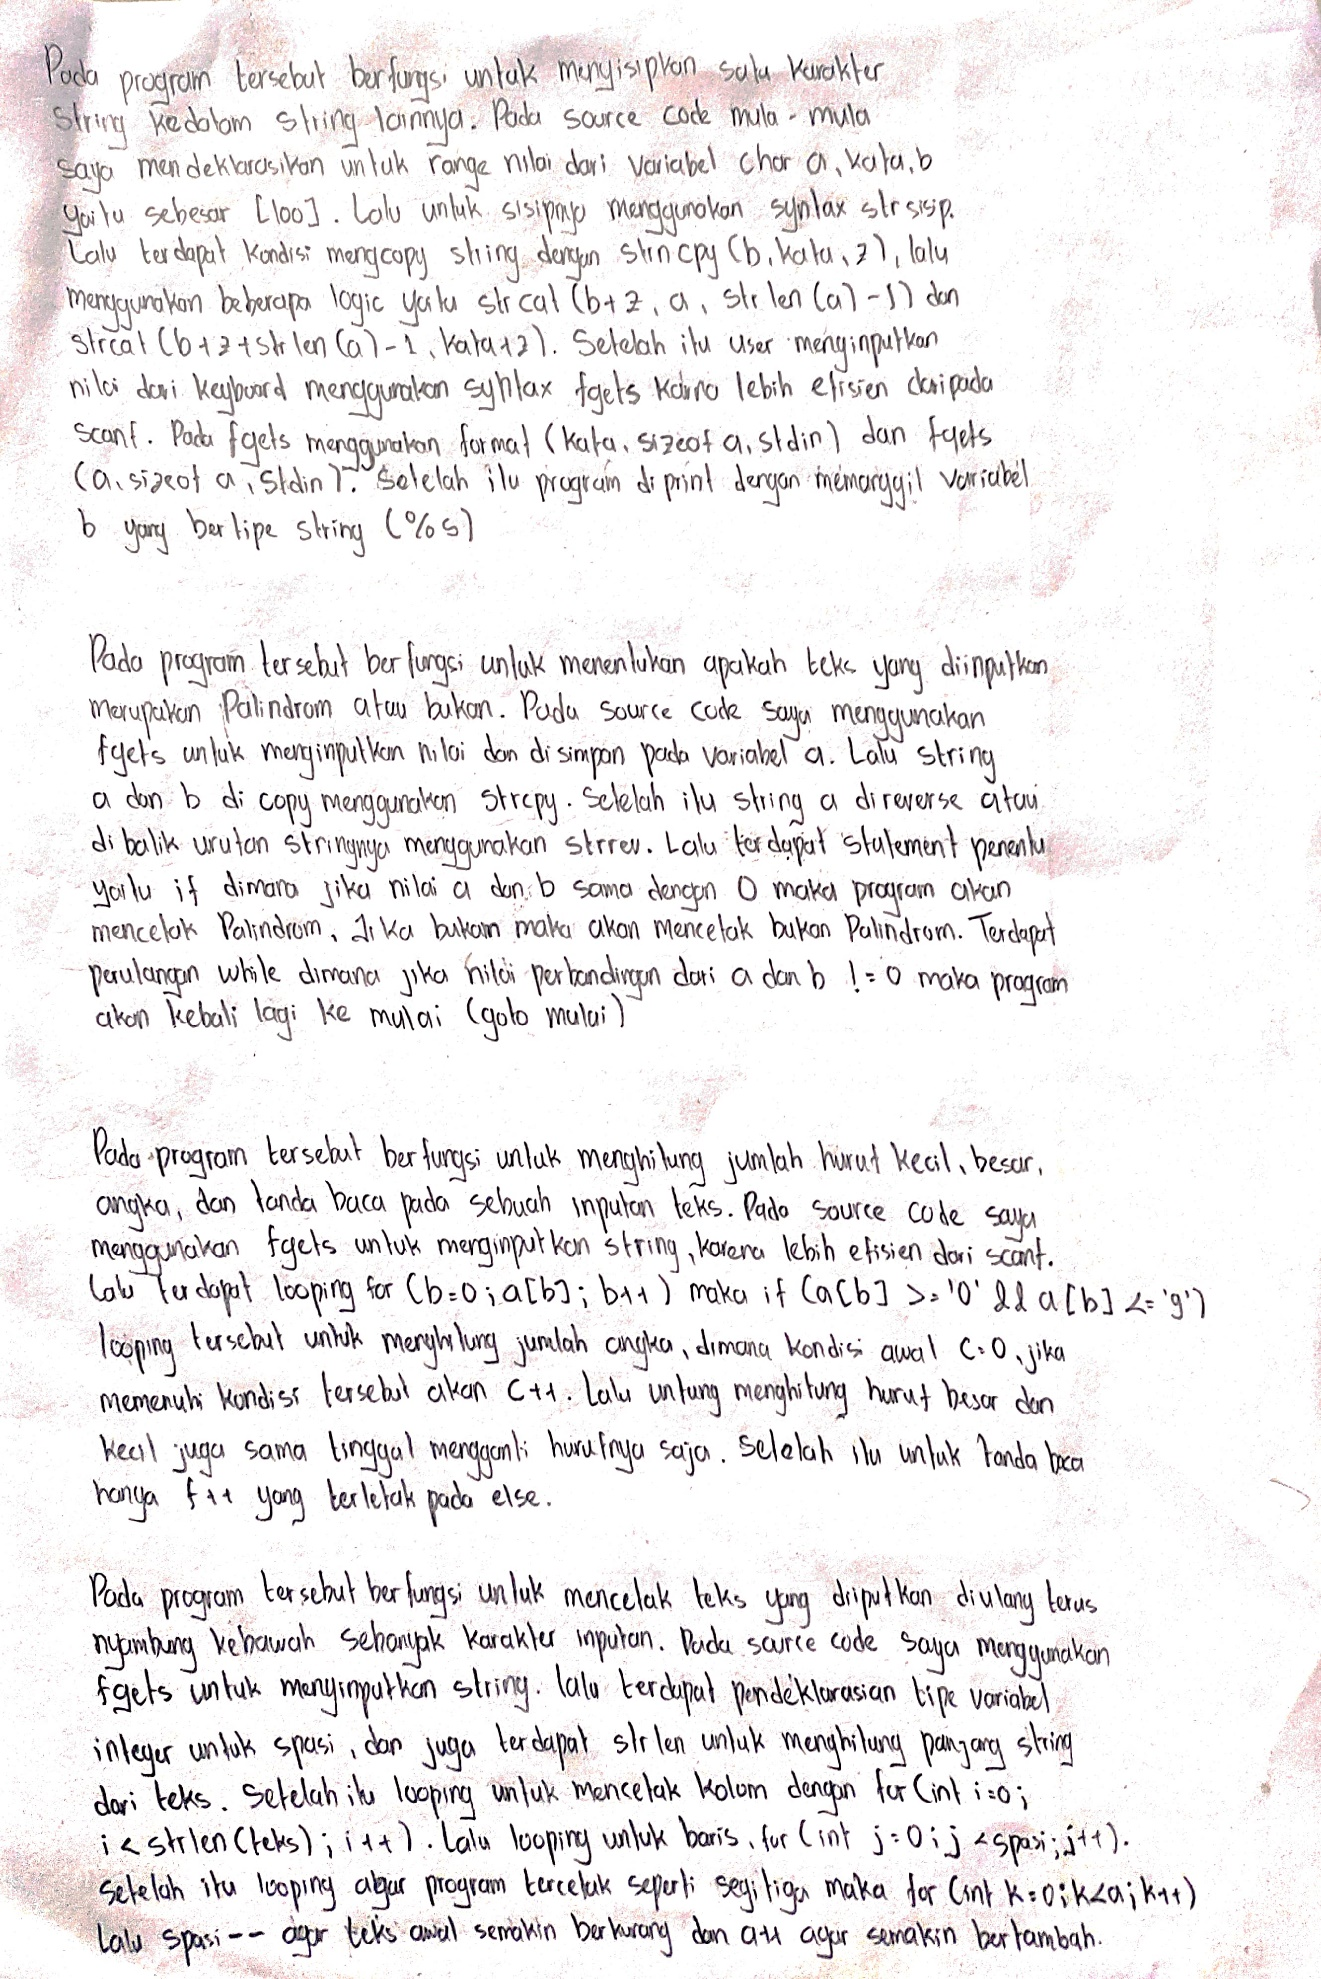 Pada program tersebut berfungsi untuk menyisipkan satu karakter
string kedalam string lainnya. Pada source code mula-mula
saya mendeklarasikan untuk range nilai dari variabel char a, kata, b
yaitu sebesar [100]. Lalu untuk sisipnya menggunakan syntax strsisip.
Lalu terdapat kondisi mengcopy string dengan strncpy (b, kata, z), lalu
menggunakan beberapa logic yaitu strcat (b+z, a, strlen (a) -1) dan
strcat (b+z+strlen (a) -1, kata+z). Setelah itu user menginputkan
nilai dari keyboard menggunakan syntax fgets karna lebih efisien daripada
scanf. Pada fgets menggunakan format (kata, sizeof a, stdin) dan fgets
(a, sizeof a, stdin). Setelah itu program di print dengan memanggil variabel
b yang bertipe string (%s)
Pada program tersebut berfungsi untuk menentukan apakah teks yang diinputkan
merupakan Palindrom atau bukan. Pada source code saya menggunakan
fgets untuk menginputkan nilai dan disimpan pada variabel a. Lalu string
a dan b di copy menggunakan strcpy. Setelah itu string a direverse atau
di balik urutan stringnya menggunakan strrev. Lalu terdapat statement penentu
yaitu if dimana jika nilai a dan b sama dengan 0 maka program akan
mencetak Palindrom, Jika bukan maka akan mencetak bukan Palindrom. Terdapat
perulangan while dimana jika nilai perbandingan dari a dan b != 0 maka program
akan kebali lagi ke mulai (goto mulai)
Pada program tersebut berfungsi untuk menghitung jumlah huruf kecil, besar,
angka, dan tanda baca pada sebuah inputan teks. Pada source code saya
menggunakan fgets untuk menginputkan string, karena lebih efisien dari scanf.
Lalu terdapat looping for (b=0; a[b]; b++) maka if (a[b] >= '0' && a[b] <= '9')
looping tersebut untuk menghitung jumlah angka, dimana kondisi awal C=0, jika
memenuhi kondisi tersebut akan C++. Lalu untung menghitung huruf besar dan
kecil juga sama tinggal mengganti hurufnya saja. Setelah itu untuk tanda baca
hanya f++ yang terletak pada else.
Pada program tersebut berfungsi untuk mencetak teks yang diiputkan diulang terus
nyambung kebawah sebanyak karakter inputan. Pada source code saya menggunakan
fgets untuk menginputkan string. lalu terdapat pendeklarasian tipe variabel
integer untuk spasi, dan juga terdapat strlen untuk menghitung panjang string
dari teks. Setelah itu looping untuk mencetak kolom dengan for (int i=0;
i < strlen (teks); i++). Lalu looping untuk baris, for (int j=0; j <spasi; j++).
Setelah itu looping agar program tercetak seperti segitiga maka for (int k=0; k<a; k++)
lalu spasi-- agar teks awal semakin berkurang dan a++ agar semakin bertambah.